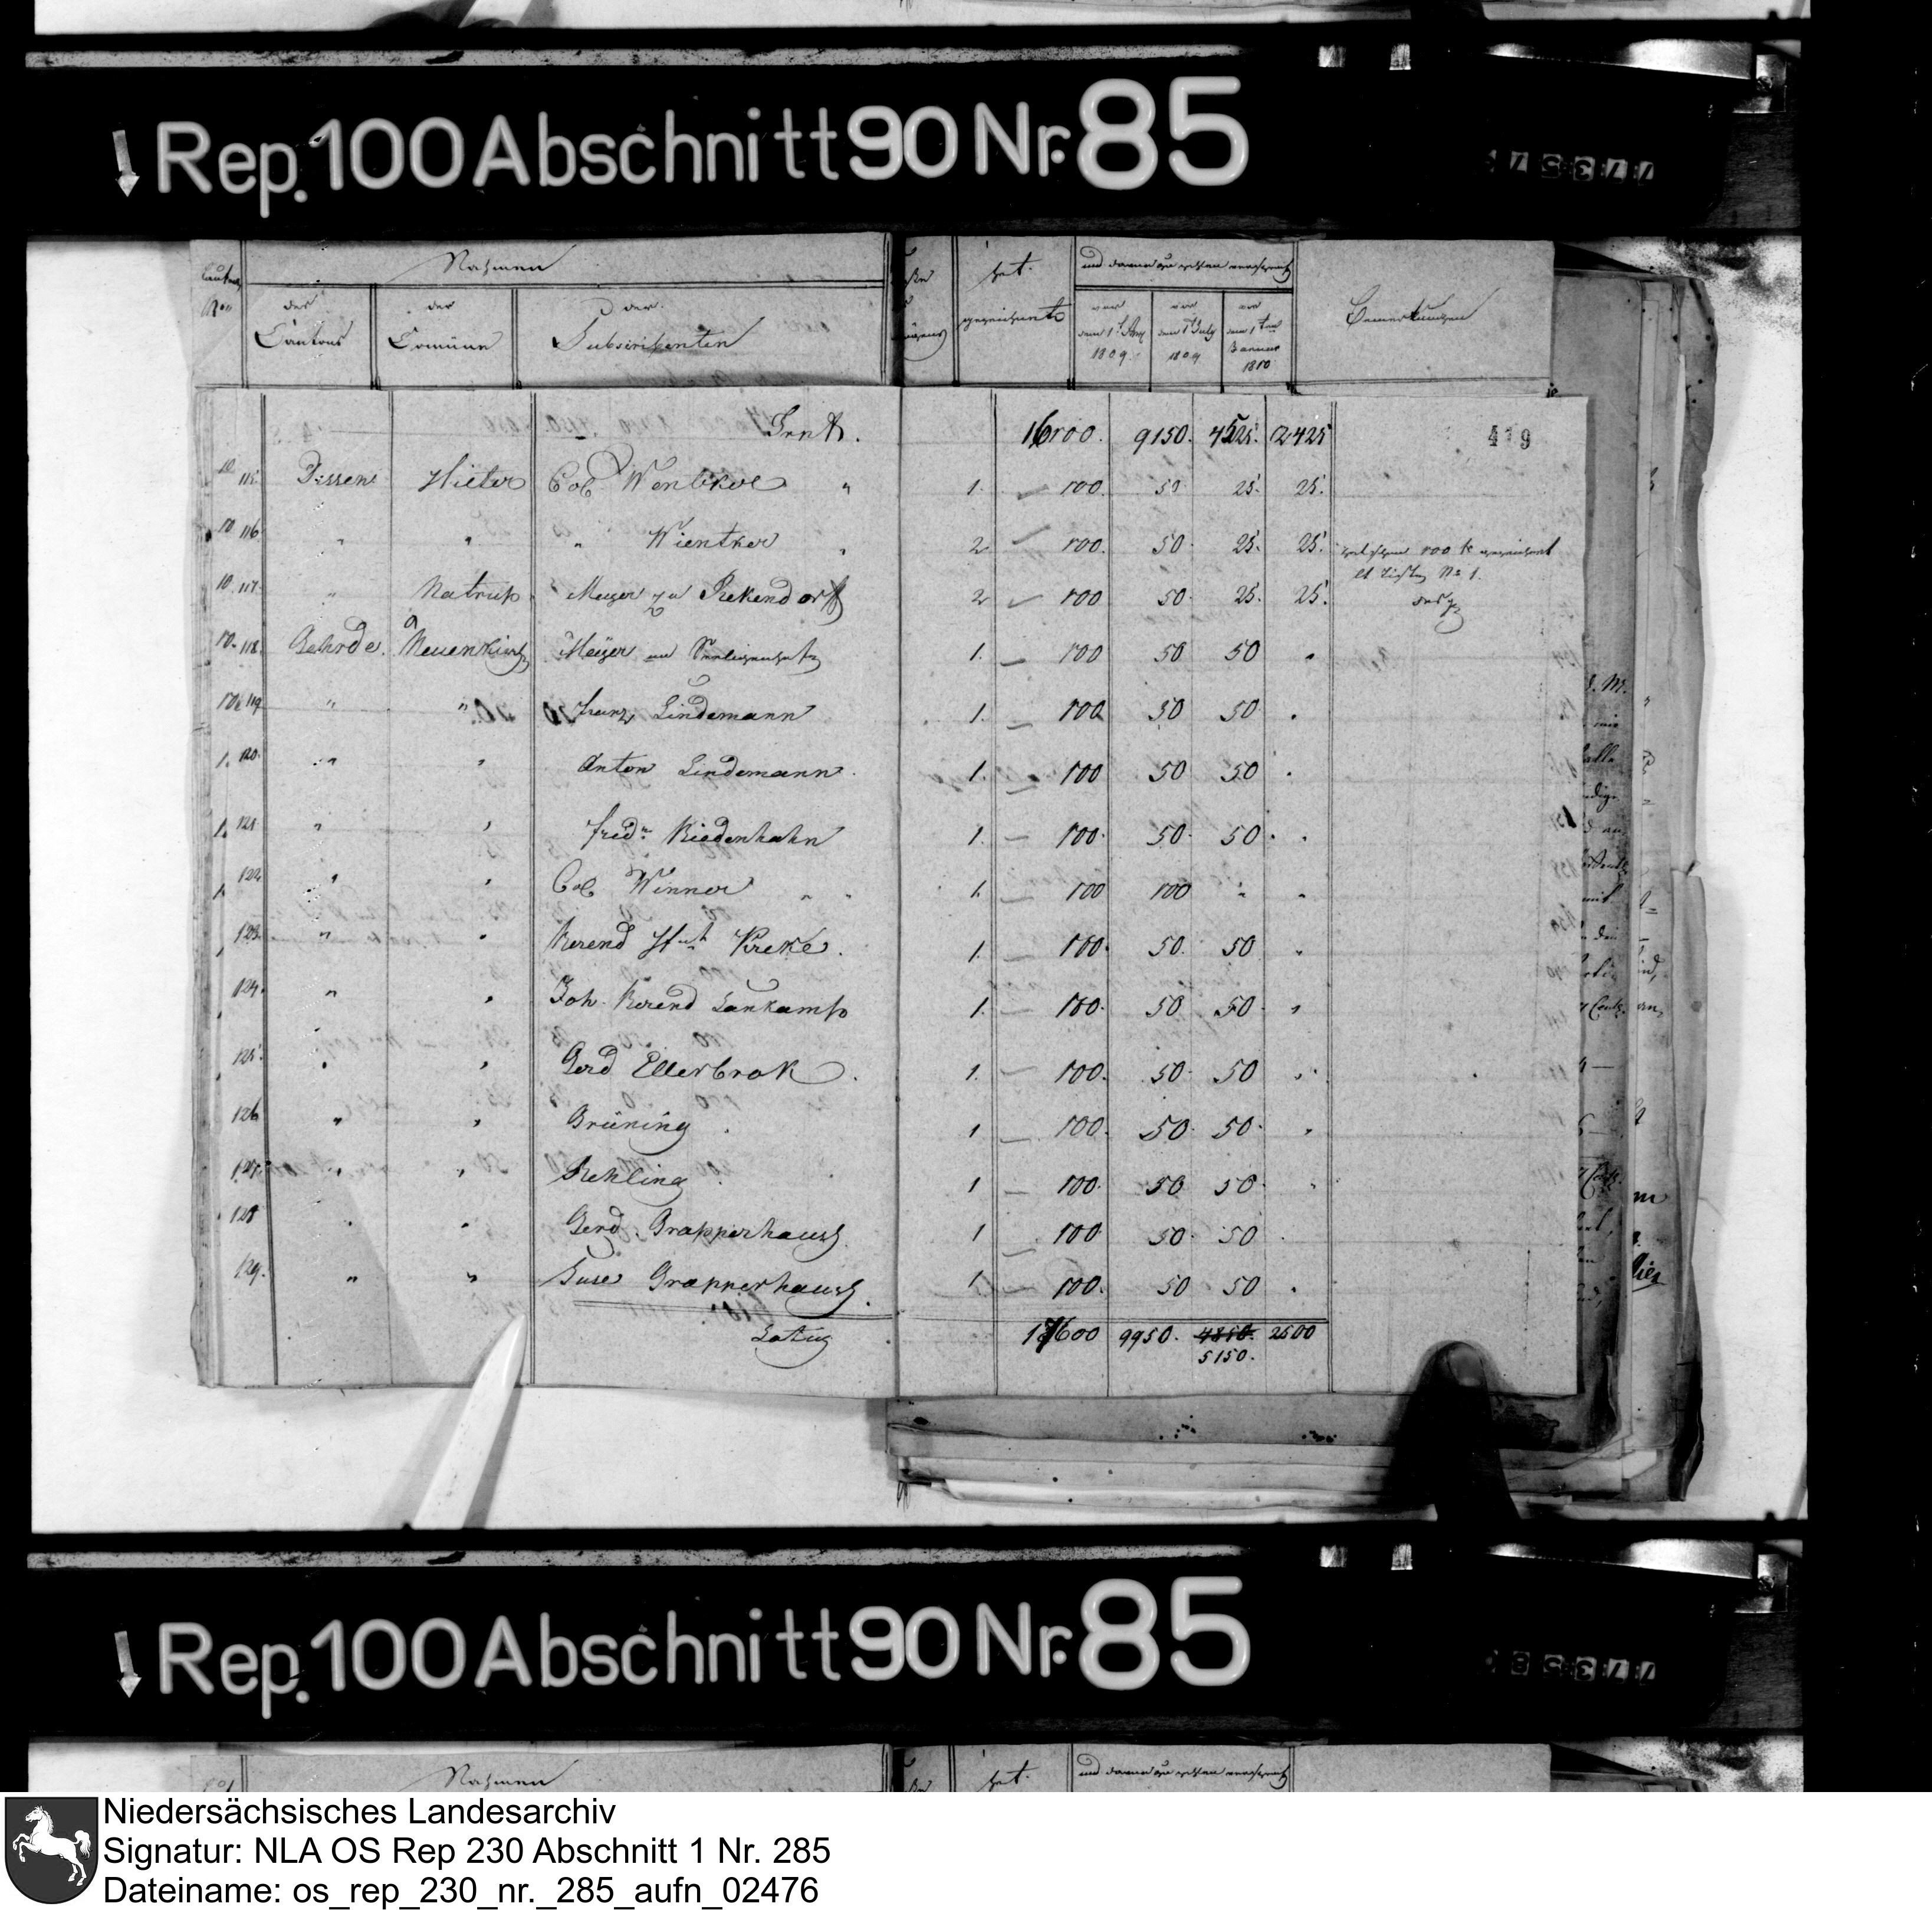 Rep. 100 Abschnitt 90 Nr. 85
Nahmen
hat
und davon zu zahlen versprochen
No
des Cantons
der Comüne
der Subscribenten
gezeichnet
dem 1t
1809
dem 1t July
1809
dem 1ten Januar
1810
Bemerkungen
16100. 9150. 4525. 2425
419
115. Dissen Hilter Col Wentker " 1. 100. 50 25. 25.
116. " " " Wientker " 2 100. 50. 25. 25. 100
No 1.
117. " Natrup Meyer zu Rekendorff 2 100 50. 25. 25.
118. Gehrde. Neuenkirch Meÿer 1. 100 50 50 "
119. " " Franz Lindemann 1. 100 50 50 "
120. " " Anton Lindemann. 1. 100 50 50 "
121. " " Friedr Riedenhahn 1. 100. 50. 50 "
122. " " Col Winner " " 1. 100 100 " "
123. " " Berend Kreke. 1. 100. 50. 50 "
124. " " Joh. Berend Lankamp 1. 100. 50 50. "
125. " " Gerd Ellerbrok. 1. 100. 50. 50 "
126 " " Grüning. 1 100. 50. 50. "
127. " " Rehling. 1 100. 50 50. "
128 " " Gerd. Grapperhaus. 1 100 50. 50 "
129. " " Grapperhaus. 1. 100. 50 50 "
Latus 17600 9950. 4850. 2500
5150.
Rep. 100 Abschnitt 90 Nr. 85
Nahmen
hat.
und davon zu zahlen versprochen
Niedersächsisches Landesarchiv
Signatur: NLA OS Rep 230 Abschnitt 1 Nr. 285
Dateiname: os_rep_230_nr._285_aufn_02476